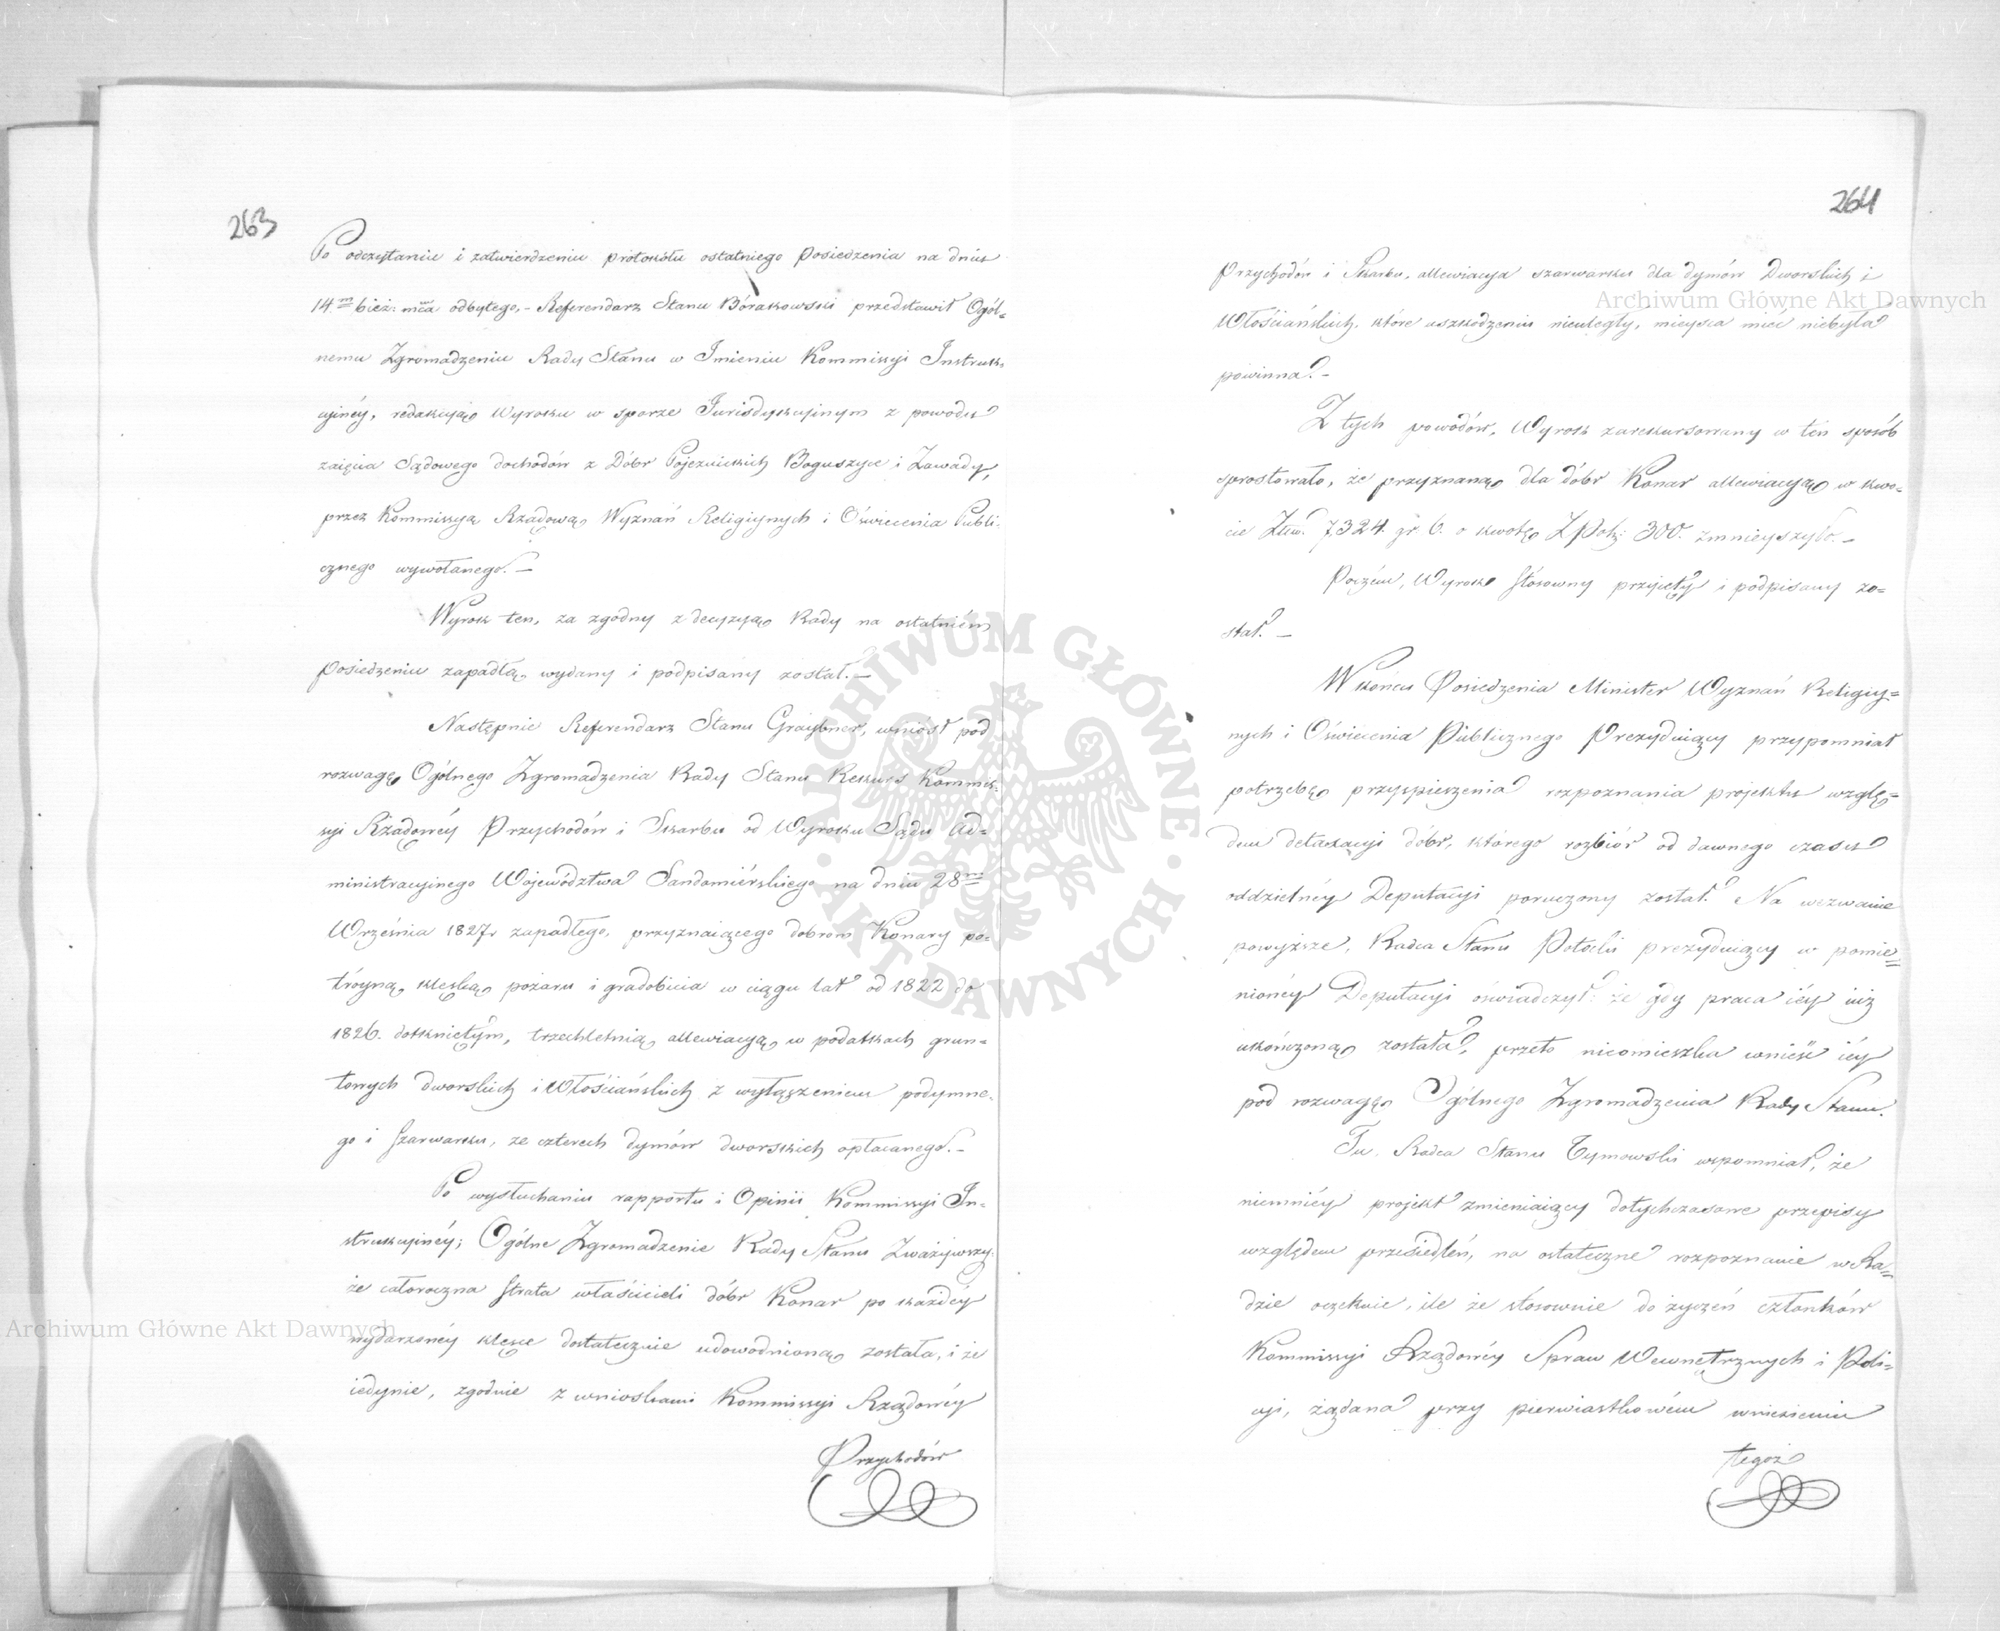 263
Po odczytaniu i zatwierdzeniu protokółu ostatniego Posiedzenia na dniu
14.m bież: mca odbytego, - Referendarz Stanu Bórakowski przedstawił Ogól=
nemu Zgromadzeniu Rady Stanu w Imieniu Kommissyi Instruk=
cyinéy, redakcyją Wyroku w sporze Jurisdykcyinym z powodu
zaięcia Sądowego dochodów z Dóbr Pojezuickich Boguszyce i Zawady,
przez Kommissyą Rządową Wyznań Religiynych i Oświecenia Publi-
cznego wywołanego. —
Wyrok ten, za zgodny z decyzyą Rady na ostatniém
Posiedzeniu zapadłą, wydany i podpisany został. —
Następnie Referendarz Stanu Graybner, wniósł pod
rozwagę Ogólnego Zgromadzenia Rady Stanu Rekurs Kommis-
syi Rządowéy Przychodów i Skarbu od Wyroku Sądu Ad=
ministracyinego Województwa Sandomiérskiego na dniu 28m
Września 1827r zapadłego, przyznaiącego dobrom Konary po=
tróyną klęską pożaru i gradobicia w ciągu lat od 1822 do
1826. dotkniętym, trzechletnią allewiacyą w podatkach grun=
towych dworskich i Włościańskich z wyłączeniem podymne-
go i Szarwarku, ze czterech dymów dworskich opłacanego. -
Po wysłuchaniu rapportu i Opinii Kommissyi In=
strukcyinéy; Ogólne Zgromadzenie Rady Stanu Zważywszy:
że całoroczna strata właścicieli dóbr Konar po każdéy
wydarzonéy klęsce dostatecznie udowodnioną została, i że
iedynie, zgodnie z wnioskami Kommissyi Rządowéy
Przychodów
264
Przychodów i Skarbu, allewiacya szarwarku dla dymów Dworskich i
Włościańskich, które uszkodzeniu nieuległy, mieysca mieć niebyła
powinna. -
Z tych powodów, Wyrok zarekursowany w ten sposób
sprostowało, że przyznaną dla dóbr Konar allewiacyą w kwo=
cie Złłw. 7,324. gr. 6. o kwotę Z Pols: 300. zmnieyszyło. -
Poczém, Wyrok stósowny przyięty i podpisany zo=
stał. —
W końcu Posiedzenia Minister Wyznań Religiy=
nych i Oświecenia Publicznego Prezyduiący przypomniał
potrzebę przyspieszenia rozpoznania projektu wzglę=
dem detaxacyi dóbr, którego rozbiór od dawnego czasu
oddzielnéy Deputacyi poruczony został. Na wezwanie
powyższe, Radca Stanu Potocki prezyduiący w pomie=
nionéy Deputacyi oświadczył: że gdy praca iéy iuż
ukończoną została, przeto nieomieszka wnieść iéy
pod rozwagę Ogólnego Zgromadzenia Rady Stanu.
Tu, Radca Stanu Tymowski wspomniał, że
niemniéy projekt zmieniaiący dotychczasowe przepisy
względem przesiedleń, na ostateczne rozpoznanie w Ra=
dzie oczekuie, ile że stósownie do życzeń członków
Kommissyi Rządowéy Spraw Wewnętrznych i Poli=
cyi, żądana przy pierwiastkowém wniesieniu
tegoż
Archiwum Główne Akt Dawnych
Archiwum Główne Akt Dawnych
ARCHIWUM GŁÓWNE AKT DAWNYCH